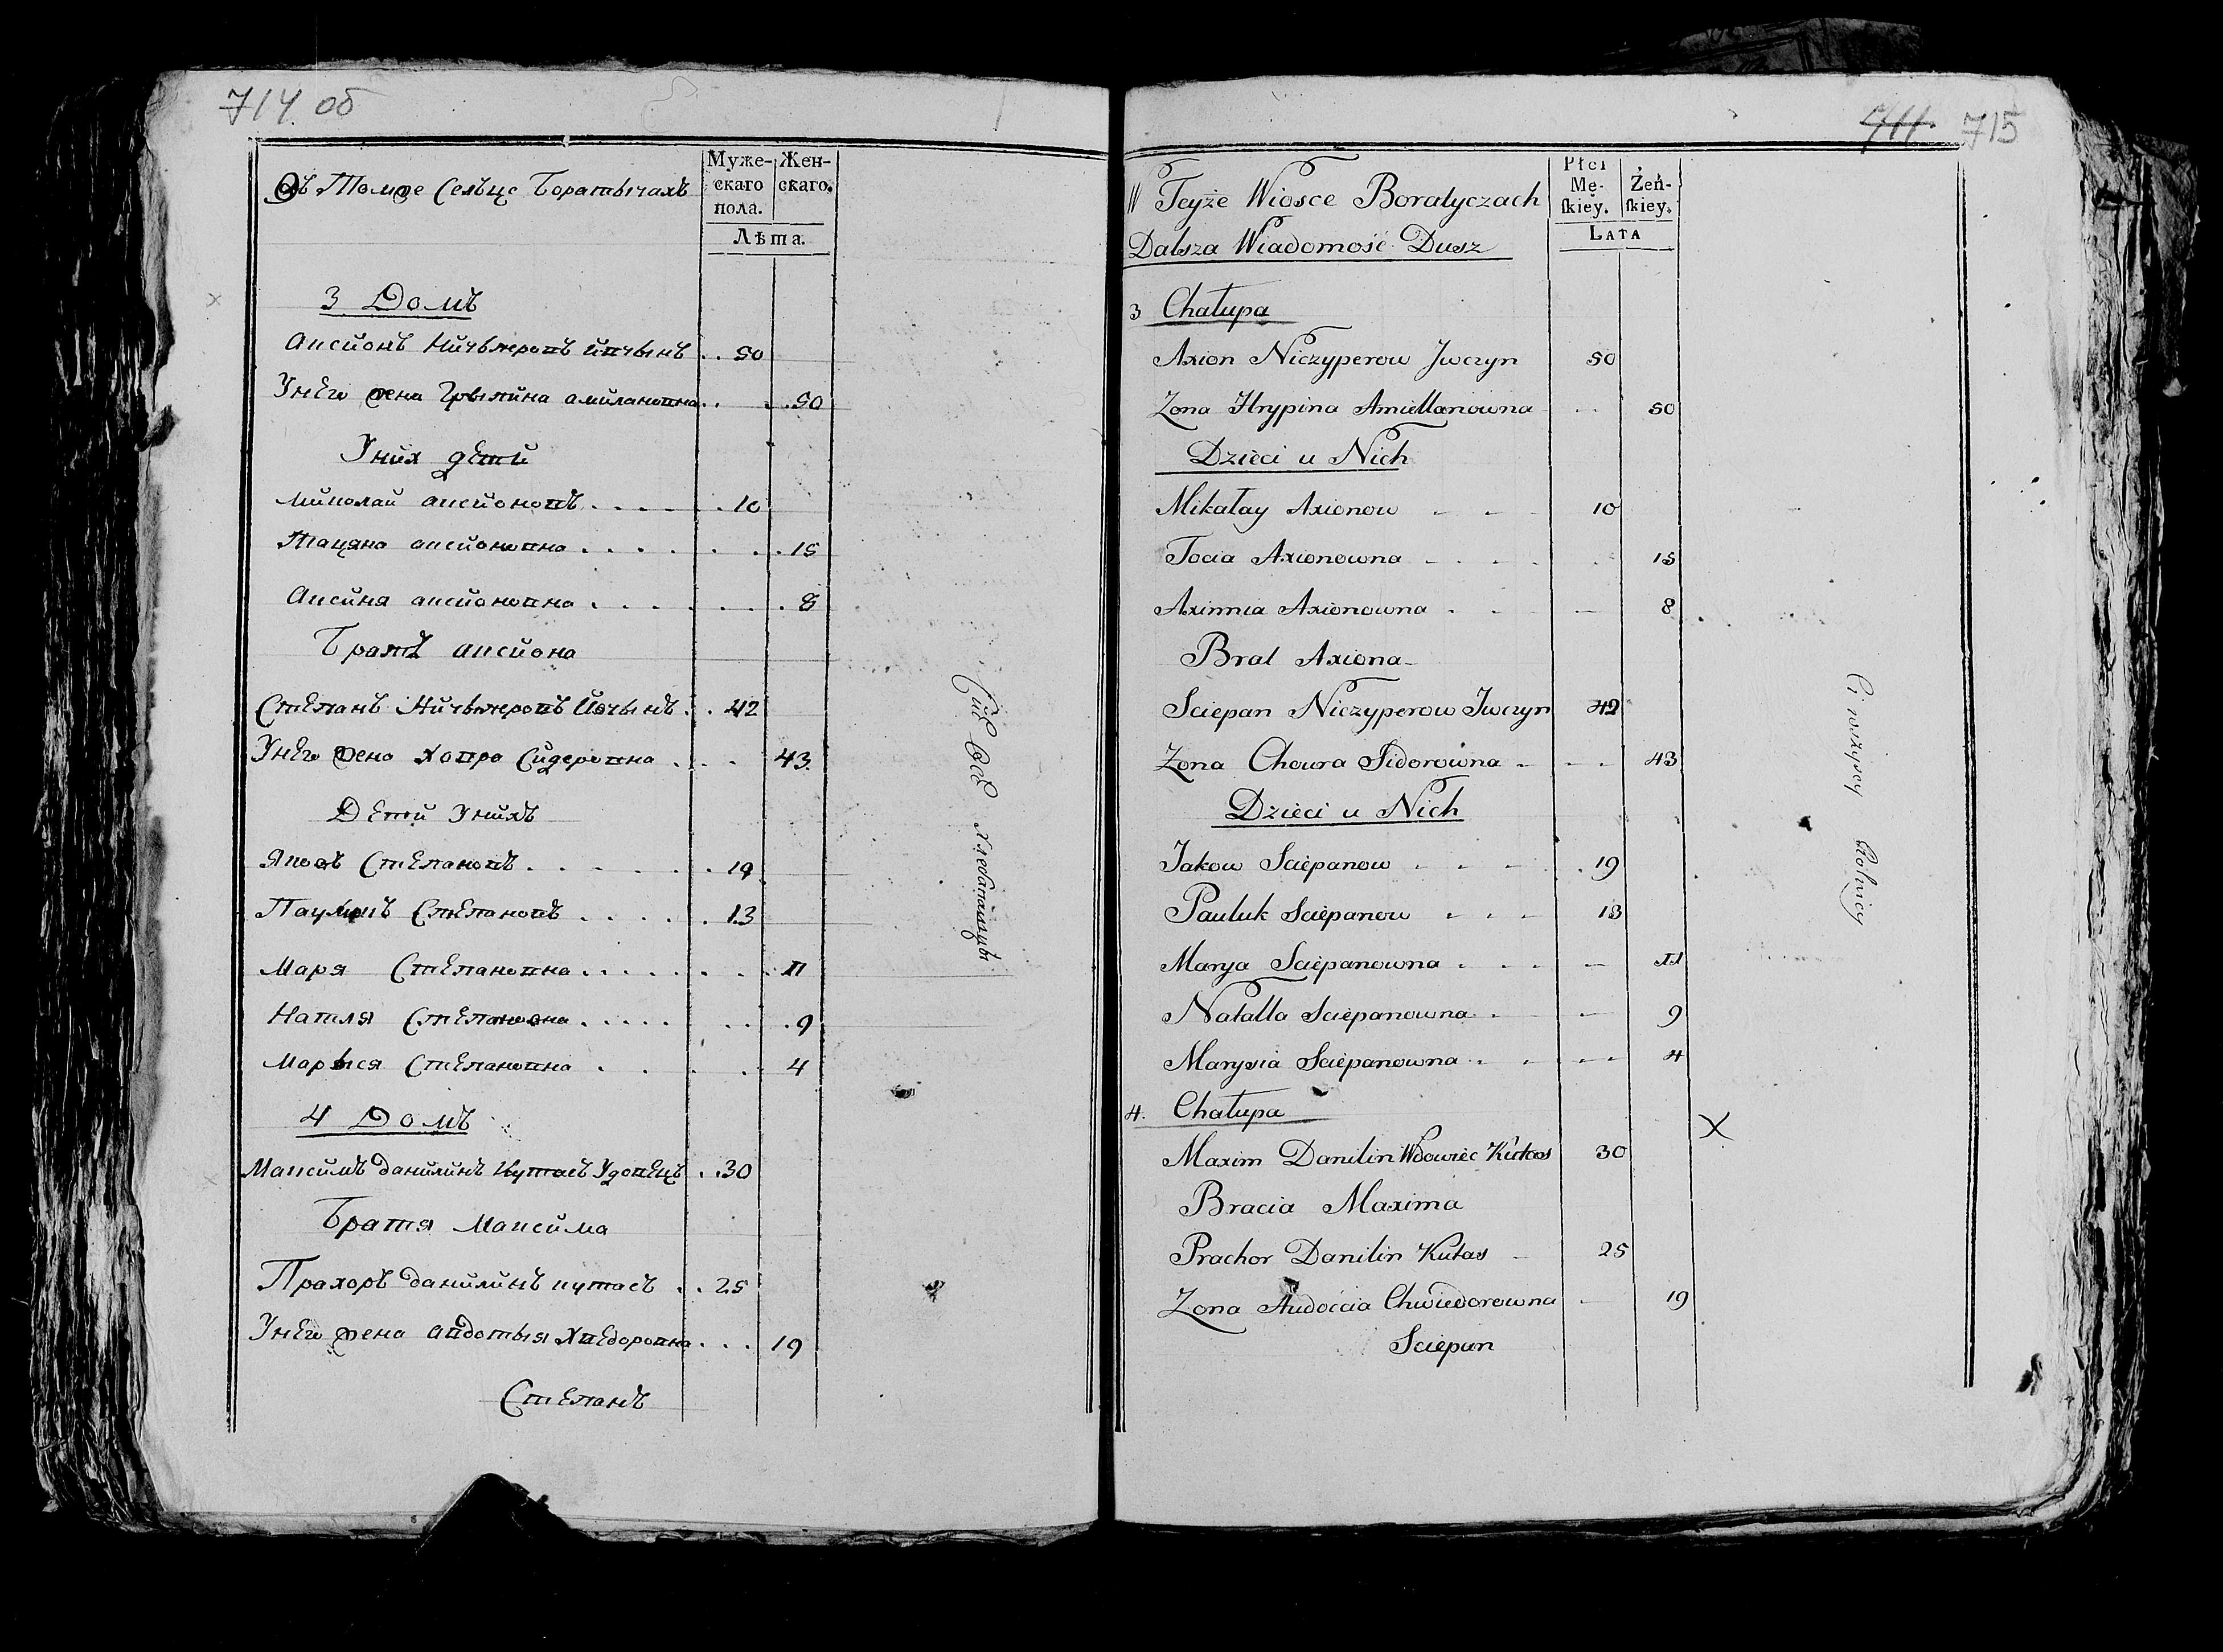 714 об
Въ Томже Селѣце Боратычахъ
Муже-
скаго
пола.
Жен-
скаго.
Лѣта.
3 Домъ
Аксионъ Ничыперовъ Ивчынъ . . 50
Унего жена Грыпина амиляновна . . . . 50
Уних дети
Миколай аксионовъ . . . . . . 10
Тацяна аксионовна . . . . . . . 15
Аксиня аксионовна . . . . . . . 8
Братъ аксиона
Степанъ Ничыперовъ Ивчынъ . . 42
Унего жена ховра Сидеровна . . . . 43
Дети Унихъ
Яковъ Степановъ . . . . . . . 19
Паулюкъ Степановъ . . . . . . 13
Маря Степановна . . . . . . . 11
Наталя Степановна . . . . . . . 9
Марыся Степановна . . . . . 4
4 Домъ
Максимъ данилинъ кутасъ Удовецъ . . 30
Братя Максима
Прахоръ данилинъ кутасъ . . 25
Унего жена авдотья хведоровна . . . 19
Степанъ
Сие Все хлебапашцы
711. 715
W Teyże Wiosce Boratyczach
Dalsza Wiadomość Dusz
Płci
Mę-
ſkiey.
Żeń-
ſkiey.
LATA
3 Chałupa
Axion Niczyperow Jwczyn 50
Zona Hrypina Amiellanowna - - 50
Dzieci u Nich
Mikałay Axionow - - 10
Axinnia Axionowna . - - 8
Brat Axiona
Sciepan Niczyperow Jwczyn 42
Zona Chowra Sidorowna - - - 43
Dzieci u Nich
Jakow Sciepanow - - - . 19
Pauluk Sciepanow - - - 13
Marya Sciepanowna . - - - 11
Natalla Sciepanowna . - 9
Marysia Sciepanowna . - - - 4
4. Chałupa
Maxim Danilin Wdowiec Kutas 30
X
Bracia Maxima
Prachor Danilin Kutas - 25
Zona Audoćcia Chwiedorowna - 19
Sciepan
Ci wszyscy Rolnicy